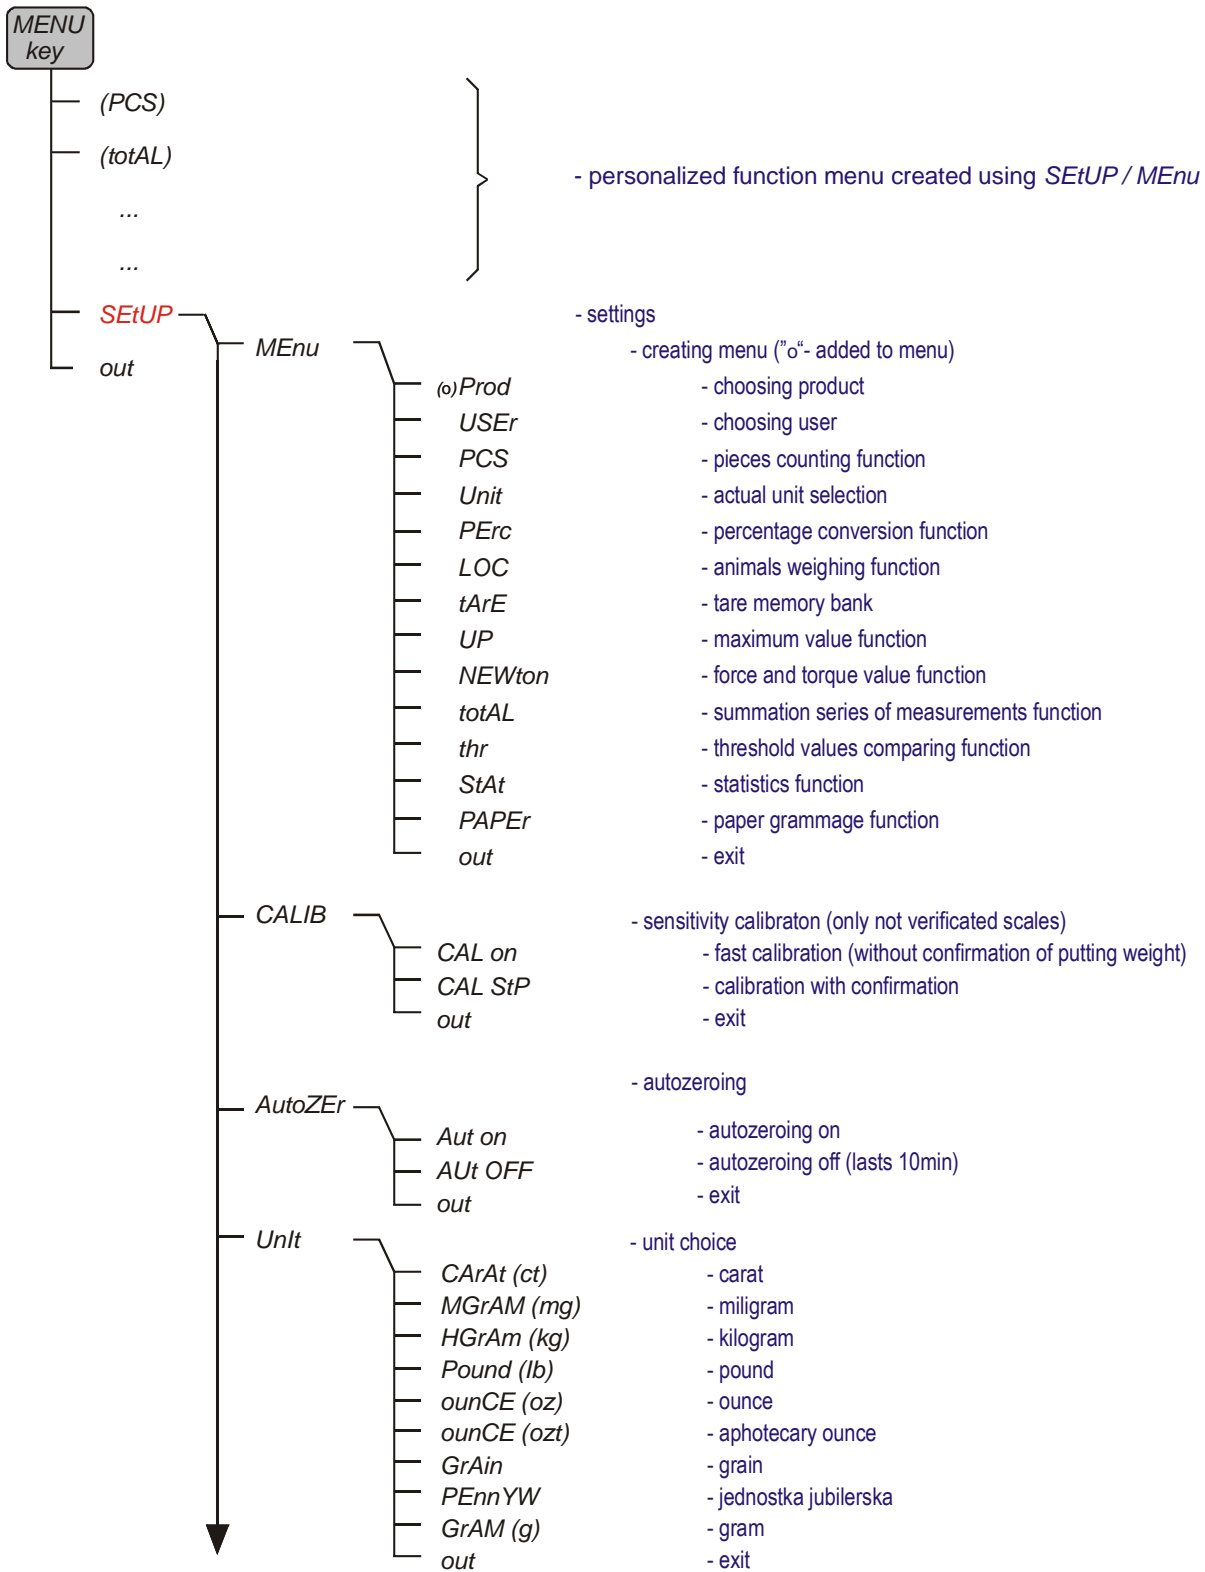 MENU
key
(PCS)
(totAL)
...
...
- personalized function menu created using SEtUP / MEnu
SEtUP - settings
MEnu - creating menu (”o“- added to menu)
out
(o)Prod - choosing product
USEr - choosing user
PCS - pieces counting function
Unit - actual unit selection
PErc - percentage conversion function
LOC - animals weighing function
tArE - tare memory bank
UP - maximum value function
NEWton - force and torque value function
totAL - summation series of measurements function
thr - threshold values comparing function
StAt - statistics function
PAPEr - paper grammage function
out - exit
CALIB - sensitivity calibraton (only not verificated scales)
CAL on - fast calibration (without confirmation of putting weight)
CAL StP - calibration with confirmation
out - exit
AutoZEr - autozeroing
Aut on - autozeroing on
AUt OFF - autozeroing off (lasts 10min)
out - exit
UnIt - unit choice
CArAt (ct) - carat
MGrAM (mg) - miligram
HGrAm (kg) - kilogram
Pound (lb) - pound
ounCE (oz) - ounce
ounCE (ozt) - aphotecary ounce
GrAin - grain
PEnnYW - jednostka jubilerska
GrAM (g) - gram
out - exit